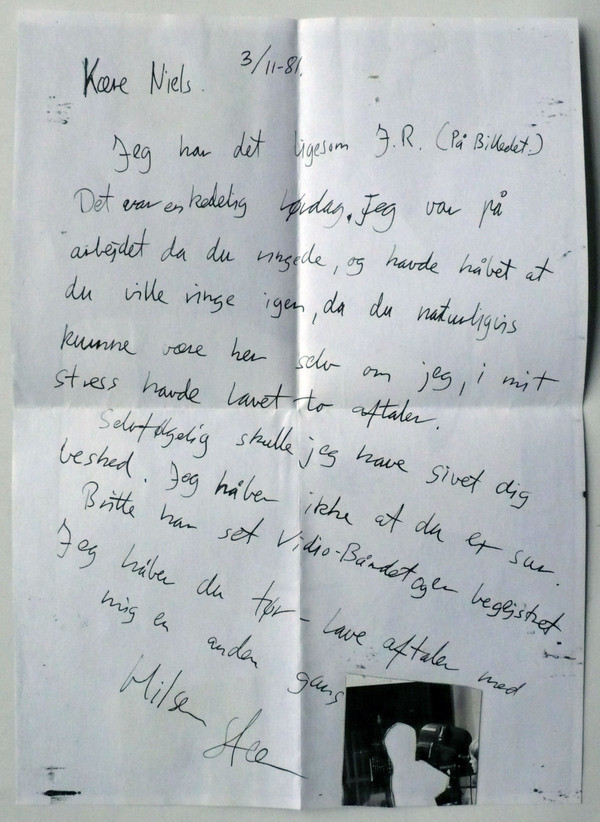 3/11-81.
Kære Niels.
Jeg har det ligesom J.R. (På Billedet.)
Det var en kedelig lørdag. Jeg var på
arbejdet da du ringede, og havde håbet at
du ville ringe igen, da du naturligvis
kunne være her selv om jeg, i mit
stress havde lavet to aftaler.
Selvfølgelig skulle jeg have givet dig
besked. Jeg håber ikke at du er sur.
Britte har set Vidio-Båndet og er begejstret.
Jeg håber du tør lave aftaler med
mig en anden gang
Hilsen